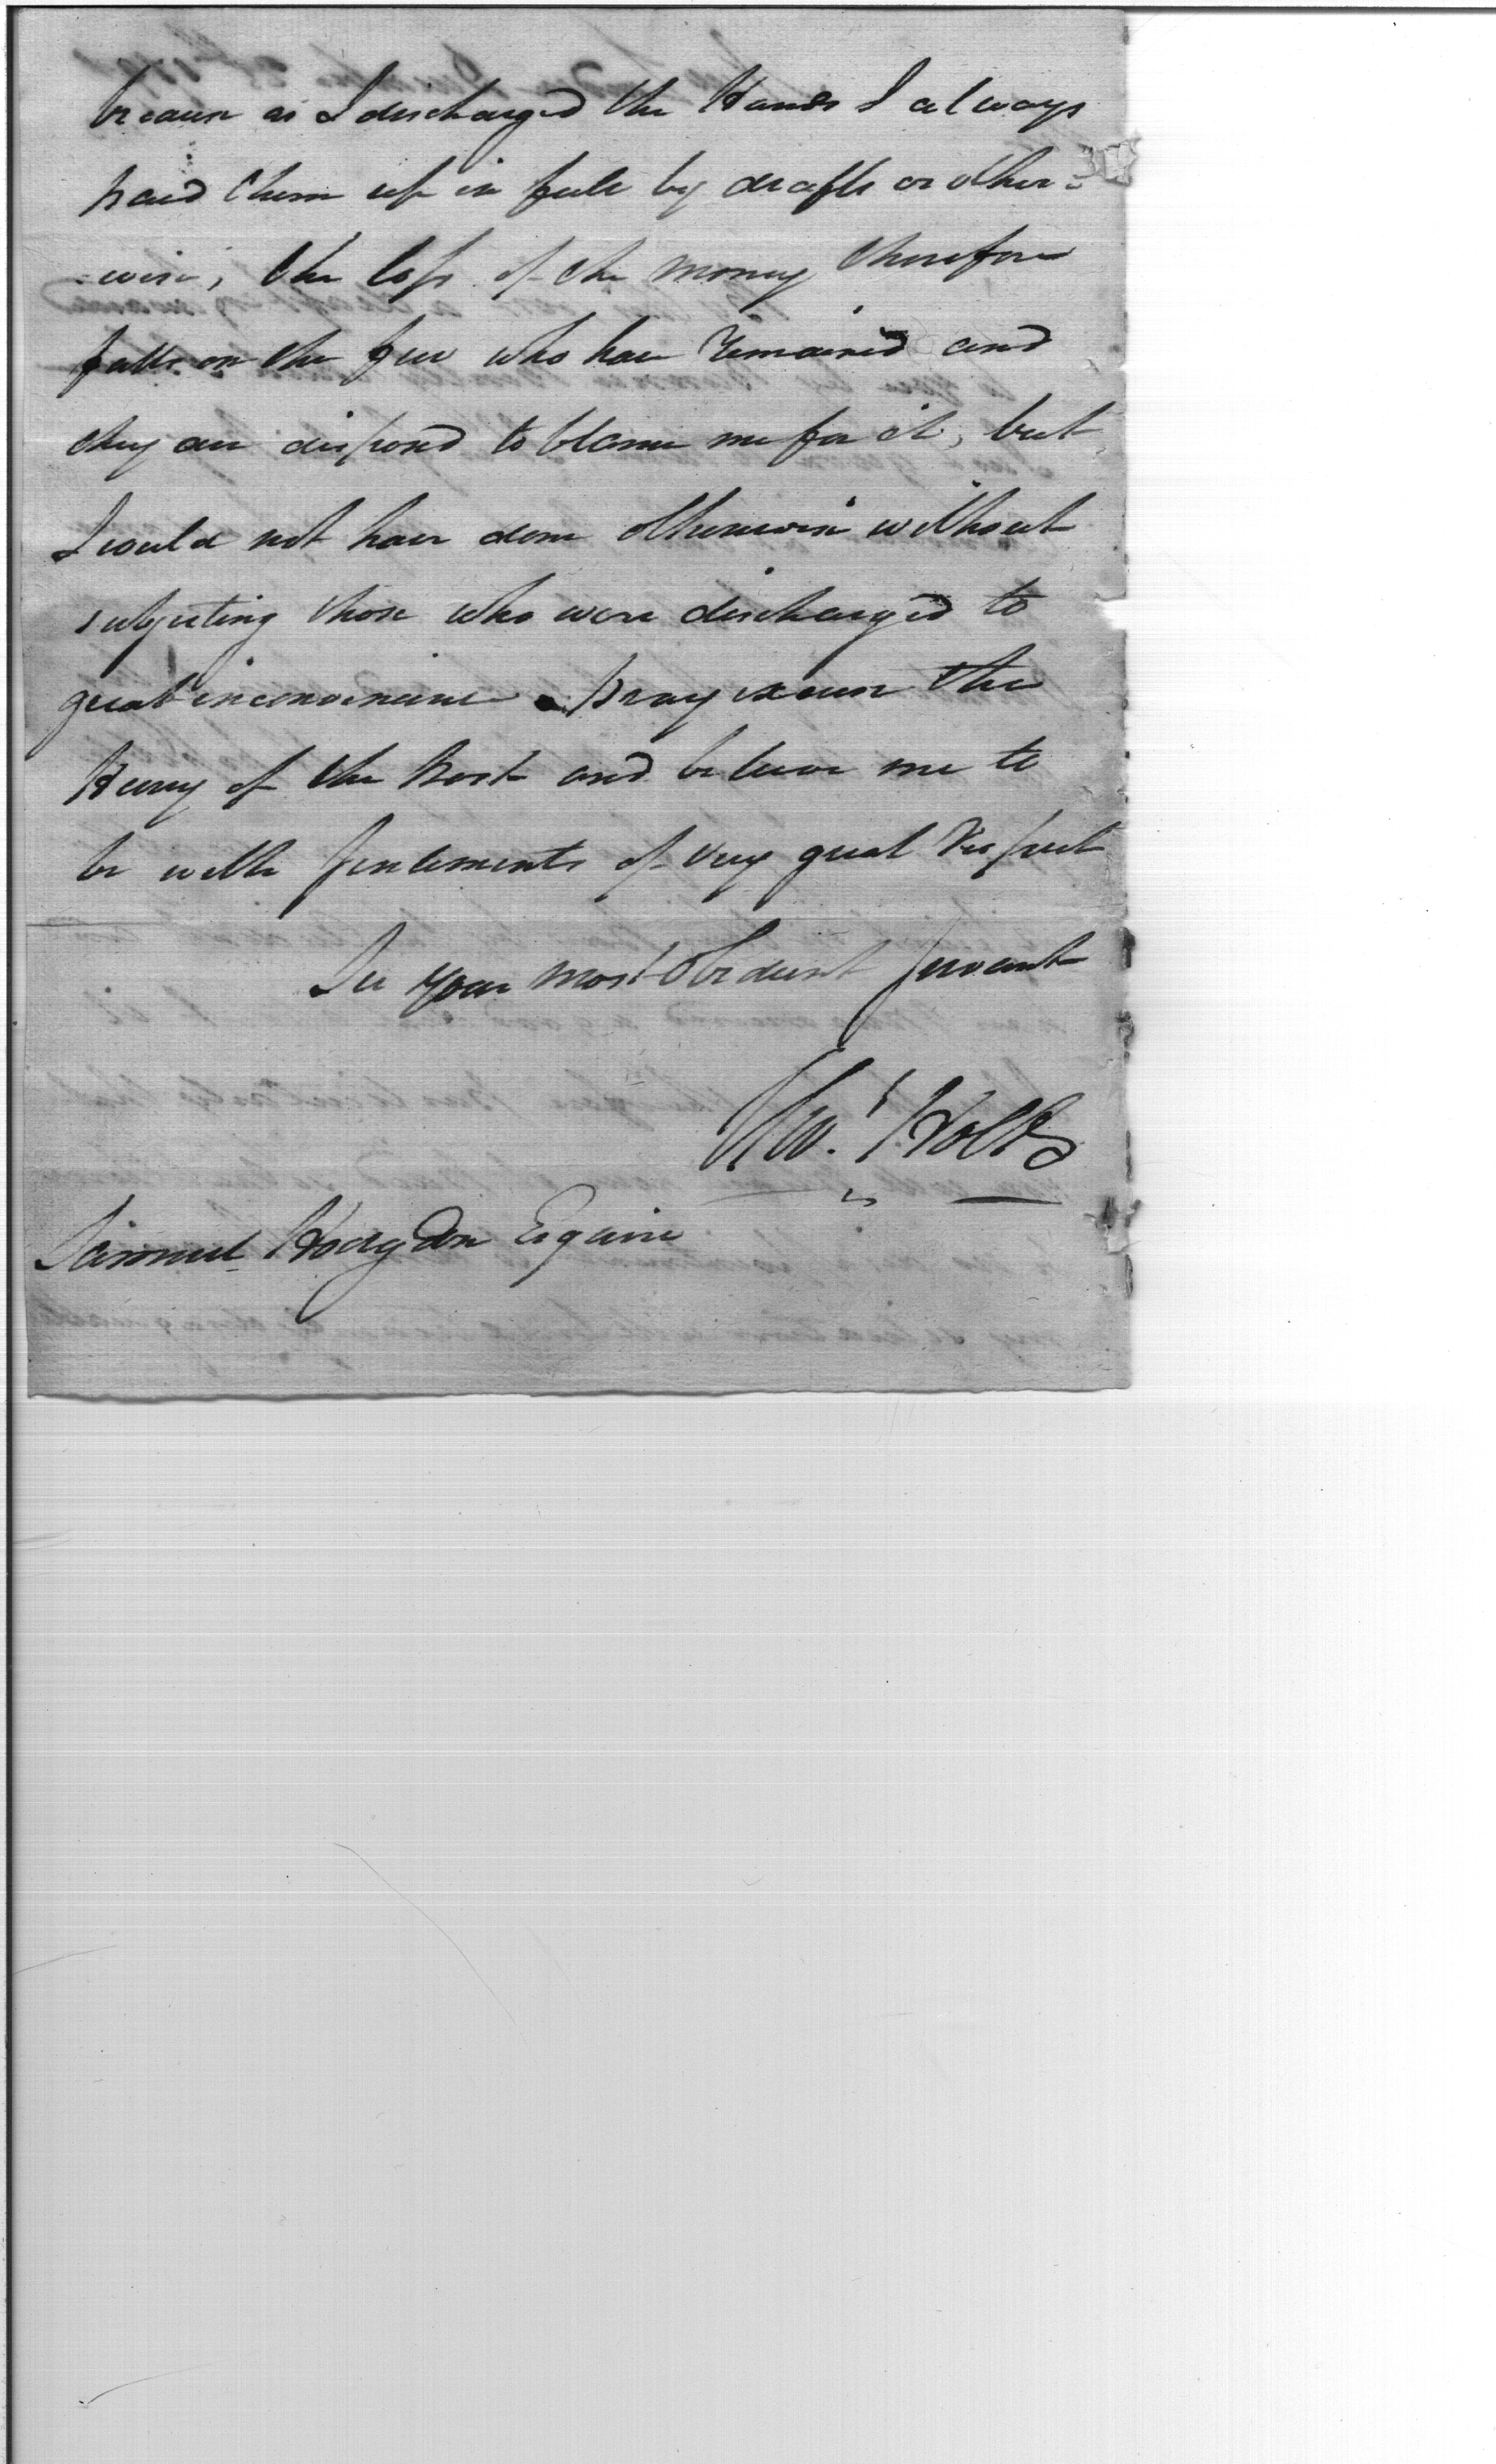 because as I discharged the Hands I always
paid them up in full by drafts or other=
=wise, the loss of the money therefore
falls on the few who have remained and
they are disposed to blame me for it, but
I could not have done otherwise without
subjecting those who were discharged to
great inconvenience. pray excuse the
Hurry of the Post and believe me to
be with Sentiments of very great Respect
Sir your most Obedient Servant
Tho.s Holt
Samuel Hodgdon Esquire